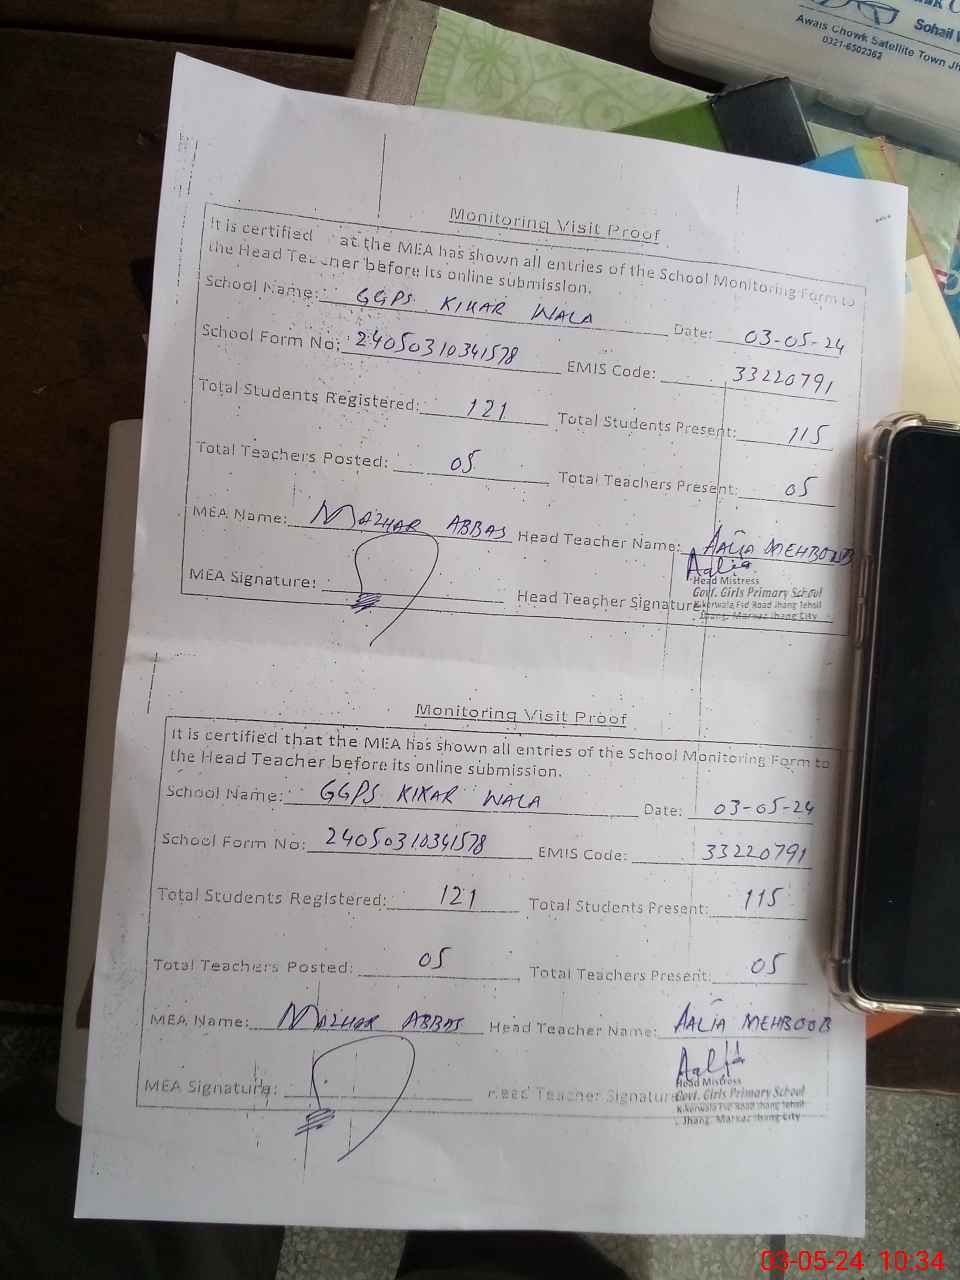 Sohail
Awais Chowk Satellite Town Jh
0321-6502362
Monitoring Visit Proof
It is certified at the MEA has shown all entries of the School Monitoring Form to
the Head Teacher before its online submission.
School Name: GGPS KIKAR WALA Date: 03-05-24
School Form No: 24050310341578 EMIS Code: 33220791
Total Students Registered: 121 Total Students Present: 115
Total Teachers Posted: 05 Total Teachers Present: 05
MEA Name: MAZHAR ABBAS Head Teacher Name: AALIA MEHBOOB
Aalia
Head Mistress
MEA Signature: Head Teacher Signature:
Govt. Girls Primary School
Kikerwala Fsd Road Jhang Tehsil
Jhang. Markaz Jhang City
Monitoring Visit Proof
It is certified that the MEA has shown all entries of the School Monitoring Form to
the Head Teacher before its online submission.
School Name: GGPS KIKAR WALA Date: 03-05-24
School Form No: 24050310341578 EMIS Code: 33220791
Total Students Registered: 121 Total Students Present: 115
Total Teachers Posted: 05 Total Teachers Present: 05
MEA Name: MAZHAR ABBAS Head Teacher Name: AALIA MEHBOOB
Head Mistress
MEA Signature: Head Teacher Signature
Govt. Girls Primary School
Kikerwala Fsd Road Jhang Tehsil
Jhang. Markaz Jhang City
03-05-24 10:34